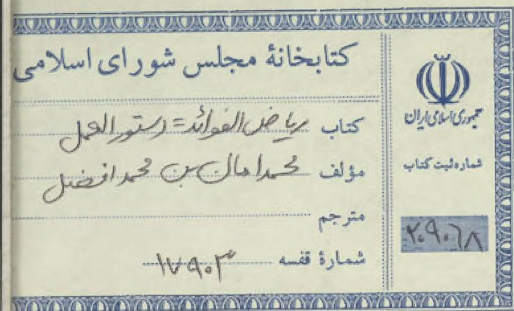 کتابخانهٔ مجلس شورای اسلامی
کتاب ریاض الفوائد = دستور العمل
مؤلف محمد امان بن محمد افضل
مترجم
شمارهٔ قفسه ۱۷۹۰۳
جمهوری اسلامی ایران
شماره ثبت کتاب
۲۰۹۰۶۸